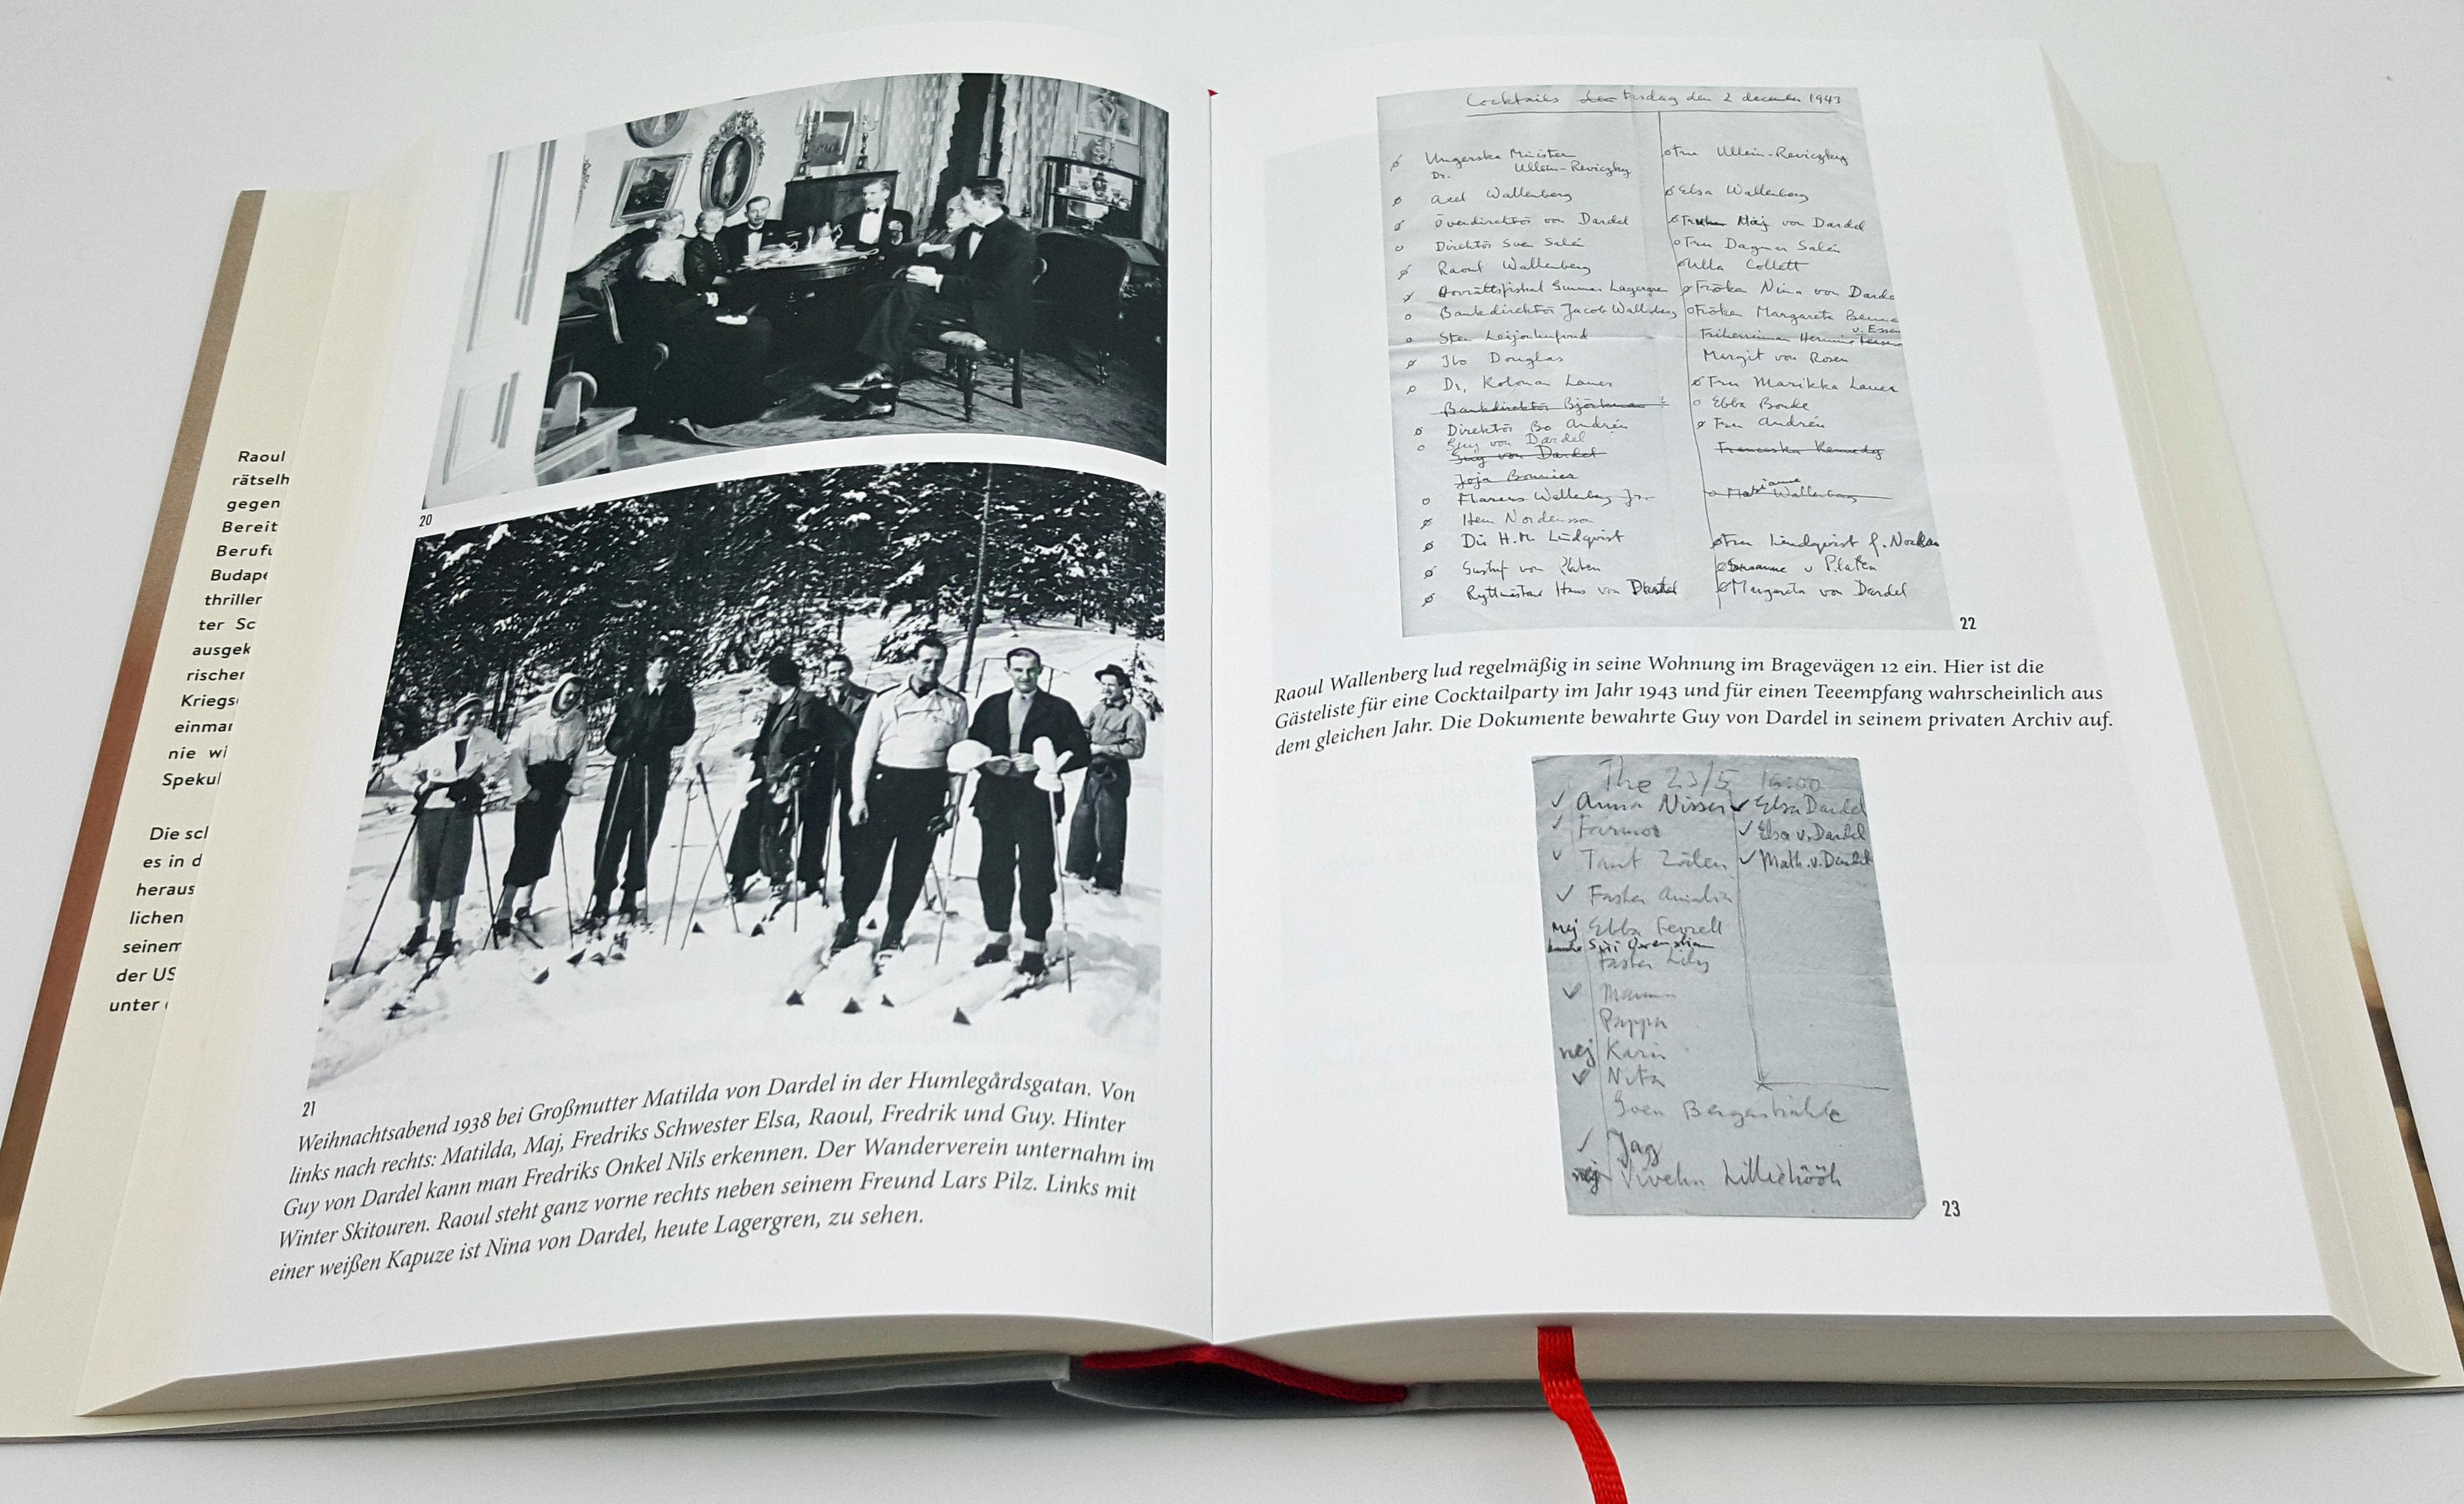 Raoul
rätselh
gegen
Bereit
Berufu
Budape
thriller
ter Sc
ausgek
rischer
Kriegs
einmar
nie wi
Spekul
Die scl
es in d
heraus
lichen
seinem
der US
unter
20
21
Weihnachtsabend 1938 bei Großmutter Matilda von Dardel in der Humlegårdsgatan. Von
links nach rechts: Matilda, Maj, Fredriks Schwester Elsa, Raoul, Fredrik und Guy. Hinter
Guy von Dardel kann man Fredriks Onkel Nils erkennen. Der Wanderverein unternahm im
Winter Skitouren. Raoul steht ganz vorne rechts neben seinem Freund Lars Pilz. Links mit
einer weißen Kapuze ist Nina von Dardel, heute Lagergren, zu sehen.
Cocktails den Tisdag den 2 december 1943
Ungerska Minister
Dr. Ullein-Reviczky
Fru Ullein-Reviczky
Axel Wallenberg
Elsa Wallenberg
Överdirektör von Dardel
Maj von Dardel
Direktör Sven Salén
Fru Dagmar Salén
Raoul Wallenberg
Ulla Collett
Hovrättsfiskal Gunnar Lagergren
Fröken Nina von Dardel
Bankdirektör Jacob Wallenberg
Fröken Margareta
v. Essen
Sten Leijonhufvud
Friherrinnan Hermine
Ibo Douglas
Margit von Rosen
Dr. Koloman Lauer
Fru Marikka Lauer
Bankdirektör Björkman ?
Ebba Bonde
Direktör Bo Andrén
Fru Andrén
Guy von Dardel
Guy von Dardel
Franceska Kennedy
Joja Bonnier
Marcus Wallenberg Jr.
Marianne Wallenberg
Herr Nordenson
Dir H.M. Lindqvist
Fru Lindqvist f.
Gustuf von Platen
Susanne v Platen
Ryttmästare Hans von Dardel
Margareta von Dardel
22
Raoul Wallenberg lud regelmäßig in seine Wohnung im Bragevägen 12 ein. Hier ist die
Gästeliste für eine Cocktailparty im Jahr 1943 und für einen Teeempfang wahrscheinlich aus
dem gleichen Jahr. Die Dokumente bewahrte Guy von Dardel in seinem privaten Archiv auf.
The 23/5 16:00
Anna Nisser
Elsa Dardel
Farmor
Elsa v. Dardel
Tant
Math. v. Dardel
Faster Amalia
nej Ebba Ferrell
Siri Oxenstierna
Faster Lily
Mamma
Pappa
nej Karin
Nita
Sven Bergenstråhle
Jag
nej Viveka Lilliehöök
23